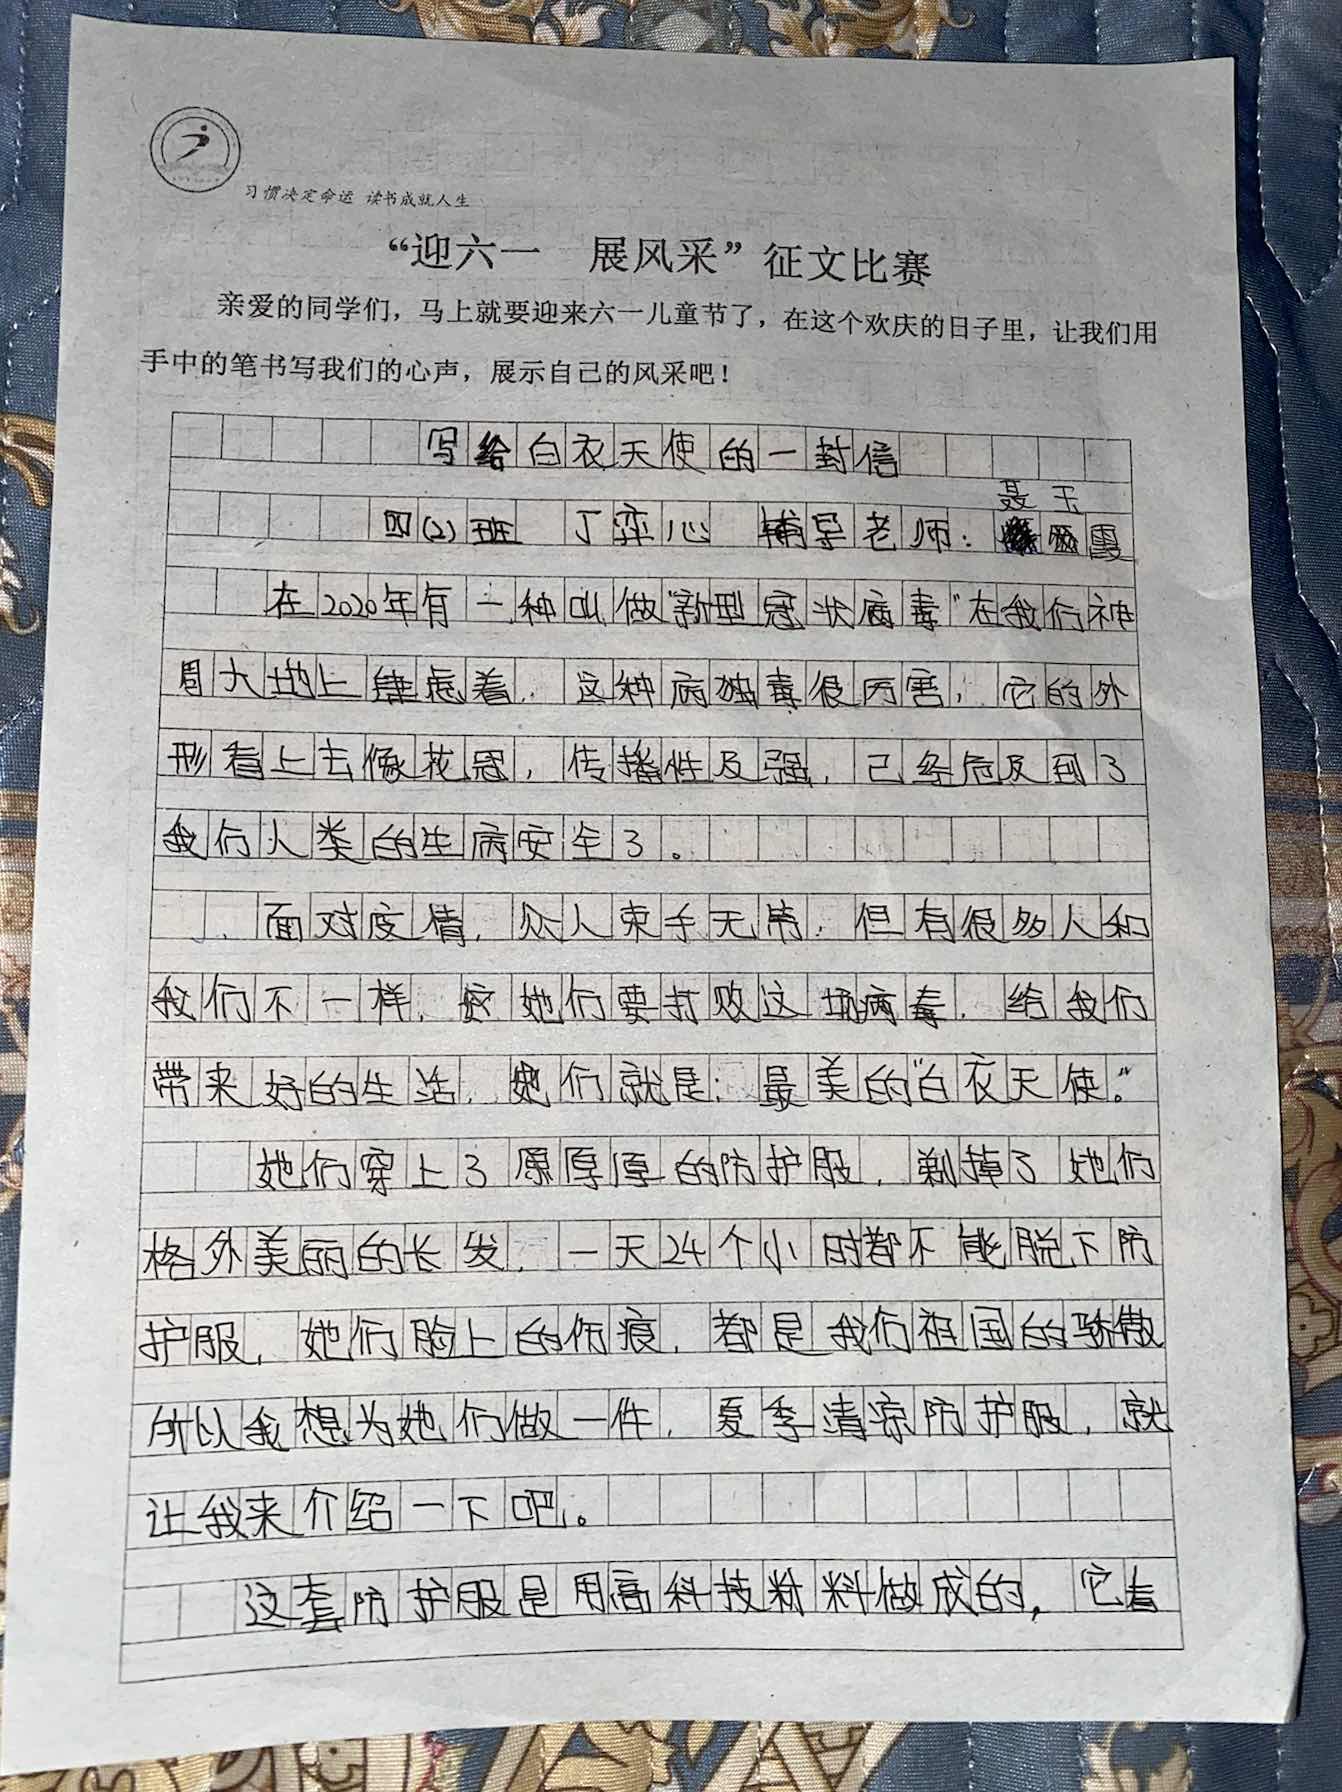 习惯决定命运 读书成就人生
“迎六一 展风采”征文比赛
亲爱的同学们，马上就要迎来六一儿童节了，在这个欢庆的日子里，让我们用
手中的笔书写我们的心声，展示自己的风采吧！
写给白衣天使的一封信
聂玉
四(2)班 丁弈心 辅导老师：霞
在2020年有一种叫做“新型冠状病毒”在我们神
周大地上肆虐着，这种病独毒很厉害，它的外
形看上去像花冠，传播性及强，已经危及到了
我们人类的生病安全了。
面对疫情，众人束手无策，但有很多人和
我们不一样，她们要打败这场病毒，给我们
带来好的生活，她们就是：最美的“白衣天使。”
她们穿上了厚厚的防护服，剃掉了她们
格外美丽的长发，一天24个小时都不能脱下防
护服，她们胸上的伤痕，都是我们祖国的骄傲
所以我想为她们做一件，夏季清凉防护服，就
让我来介绍一下吧。
这套防护服是用高科技材料做成的，它看